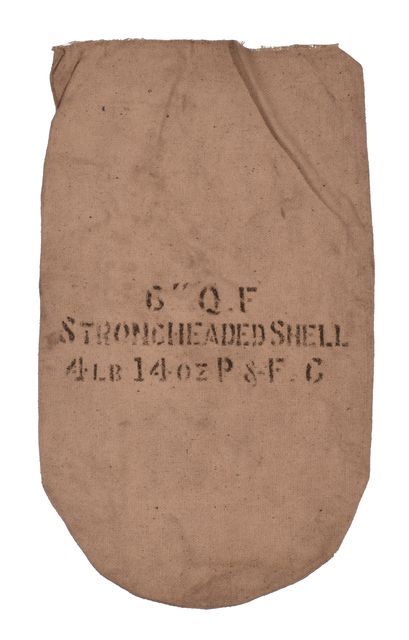 6" Q.F
STRONGHEADED SHELL
4 LB 14 OZ P & F. G